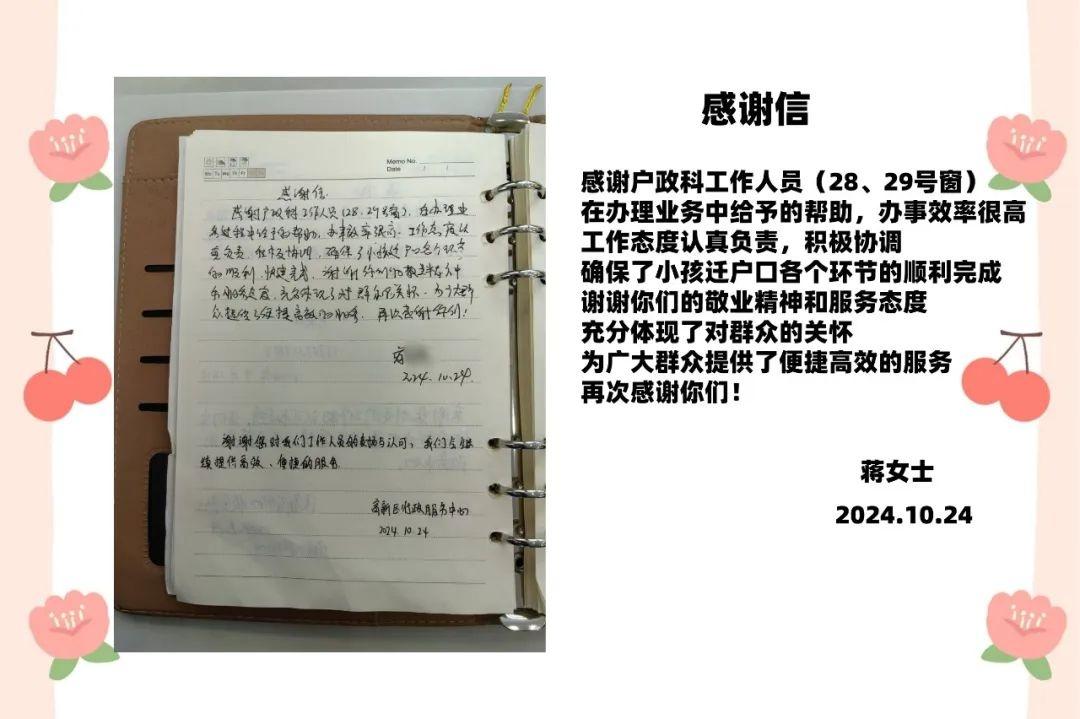 Memo No.
Date
Mo Tu We Th Fr
感谢信
感谢户政科工作人员(28、29号窗),在办理业
务过程中给予的帮助,办事效率很高,工作态度认
真负责,积极协调,确保了小孩迁户口各个环节
的顺利、快速完成,谢谢你们的敬业精神
和服务态度,充分体现了对群众的关怀,为广大群
众提供了便捷高效的服务,再次感谢你们!
蒋
2024.10.24.
谢谢您对我们工作人员的支持与认可,我们会继
续提供高效、便捷的服务.
高新区行政服务中心
2024.10.24
感谢信
感谢户政科工作人员(28、29号窗)
在办理业务中给予的帮助,办事效率很高
工作态度认真负责,积极协调
确保了小孩迁户口各个环节的顺利完成
谢谢你们的敬业精神和服务态度
充分体现了对群众的关怀
为广大群众提供了便捷高效的服务
再次感谢你们!
蒋女士
2024.10.24